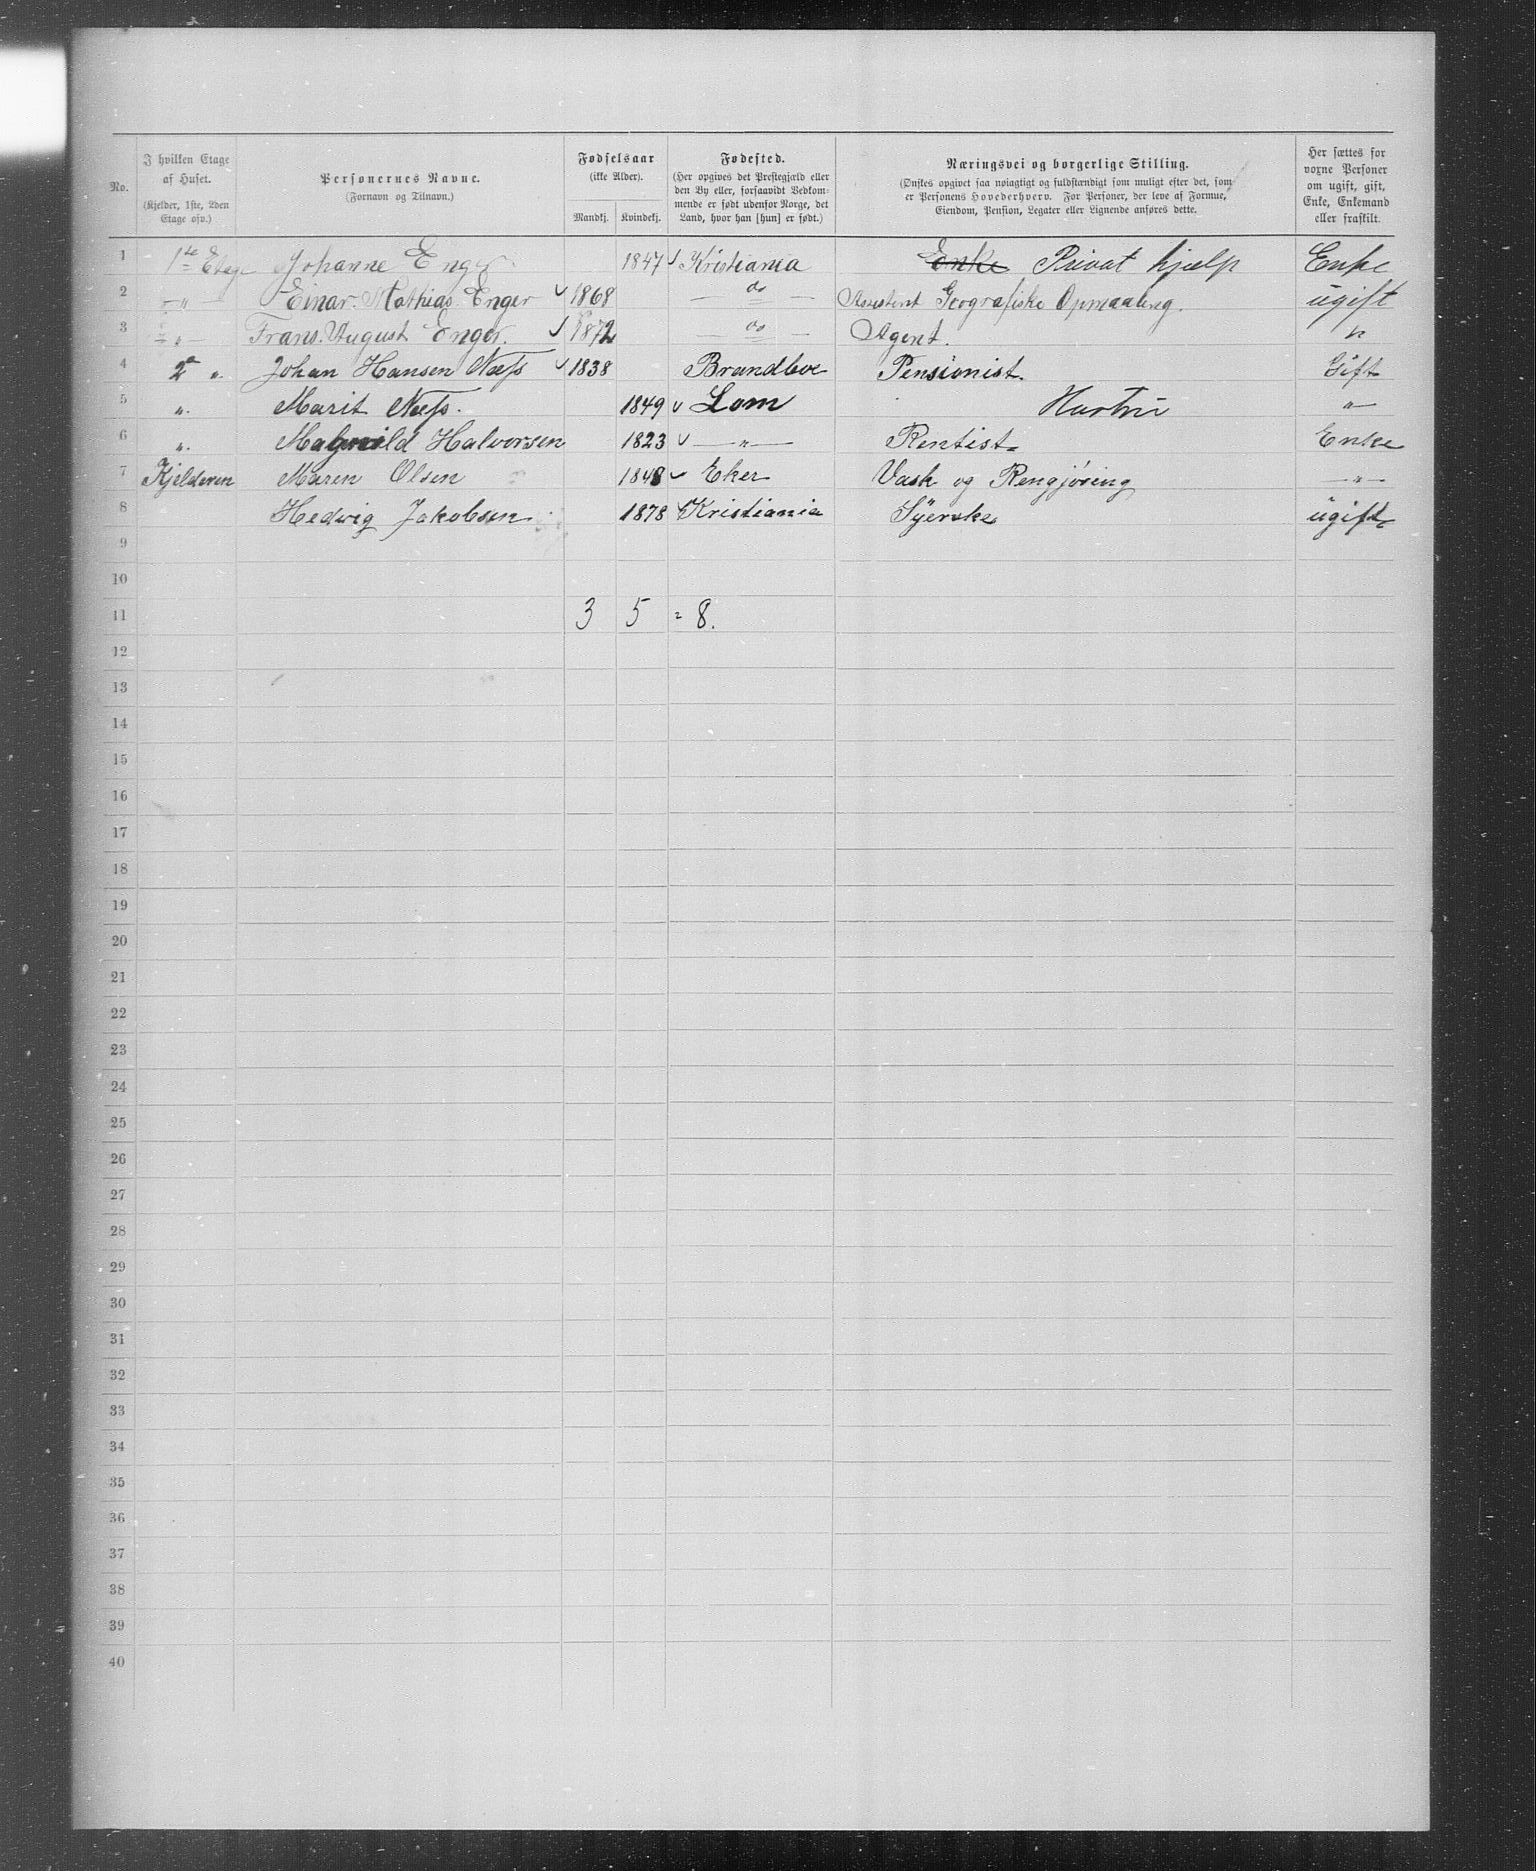 No.
I hvilken Etage af Huset. (Kjelder, 1ste, 2den Etage osv.)
Personernes Navne. (Fornavn og Tilnavn.)
Fødselsaar (ikke Alder). Mandkj. Kvindekj.
Fødested. (Her opgives det Prestegjæld eller den By eller, forsaavidt Vedkommende er født udenfor Norge, det Land, hvor han [hun] er født.)
Næringsvei og borgerlige Stilling. (Ønskes opgivet saa nøiagtigt og fuldstændigt som muligt efter det, som er Personens Hovederhverv. For Personer, der leve af Formue, Eiendom, Pension, Legater eller Lignende anføres dette.
Her sættes for voxne Personer om ugift, gift, Enke, Enkemand eller fraskilt.
1 1te Etage Johanne Enger 1847 Kristiania Enke Privat hjælp Enke
2 — " — Einar Mathias Enger 1868 — do — Assistent Geografiske Opmaaling. ugift
3 — " — Frans August Enger. 1872 — do — Agent. "
4 2 " Johan Hansen Næss 1838 Brandboe Pensionist. Gift
5 " Marit Næss. 1849 Lom Hustru — " —
6 " Halvorsen 1823 — " — Rentist Enke
7 Kjelderen Maren Olsen 1848 Eker Vask og Rengjøring — " —
8 Hedvig Jakobsen 1878 Kristiania Syerske ugift
9
10
11 3 5 = 8.
12
13
14
15
16
17
18
19
20
21
22
23
24
25
26
27
28
29
30
31
32
33
34
35
36
37
38
39
40